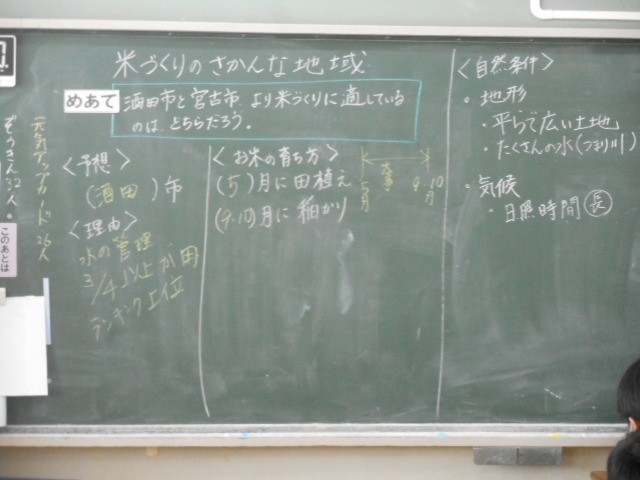 米づくりのさかんな地域
めあて
酒田市と宮古市、より米づくりに適している
のは、どちらだろう。
<予想>
(酒田)市
<理由>
水の管理
3/4以上が田
ランキング上位
<お米の育ち方>
(5)月に田植え
(9.10)月に稲かり
5月
9.10月
<自然条件>
・地形
・平らで広い土地
・たくさんの水(つまり川)
・気候
・日照時間 長
元気アップカード 26人
ぞうきん32人。
このあとは